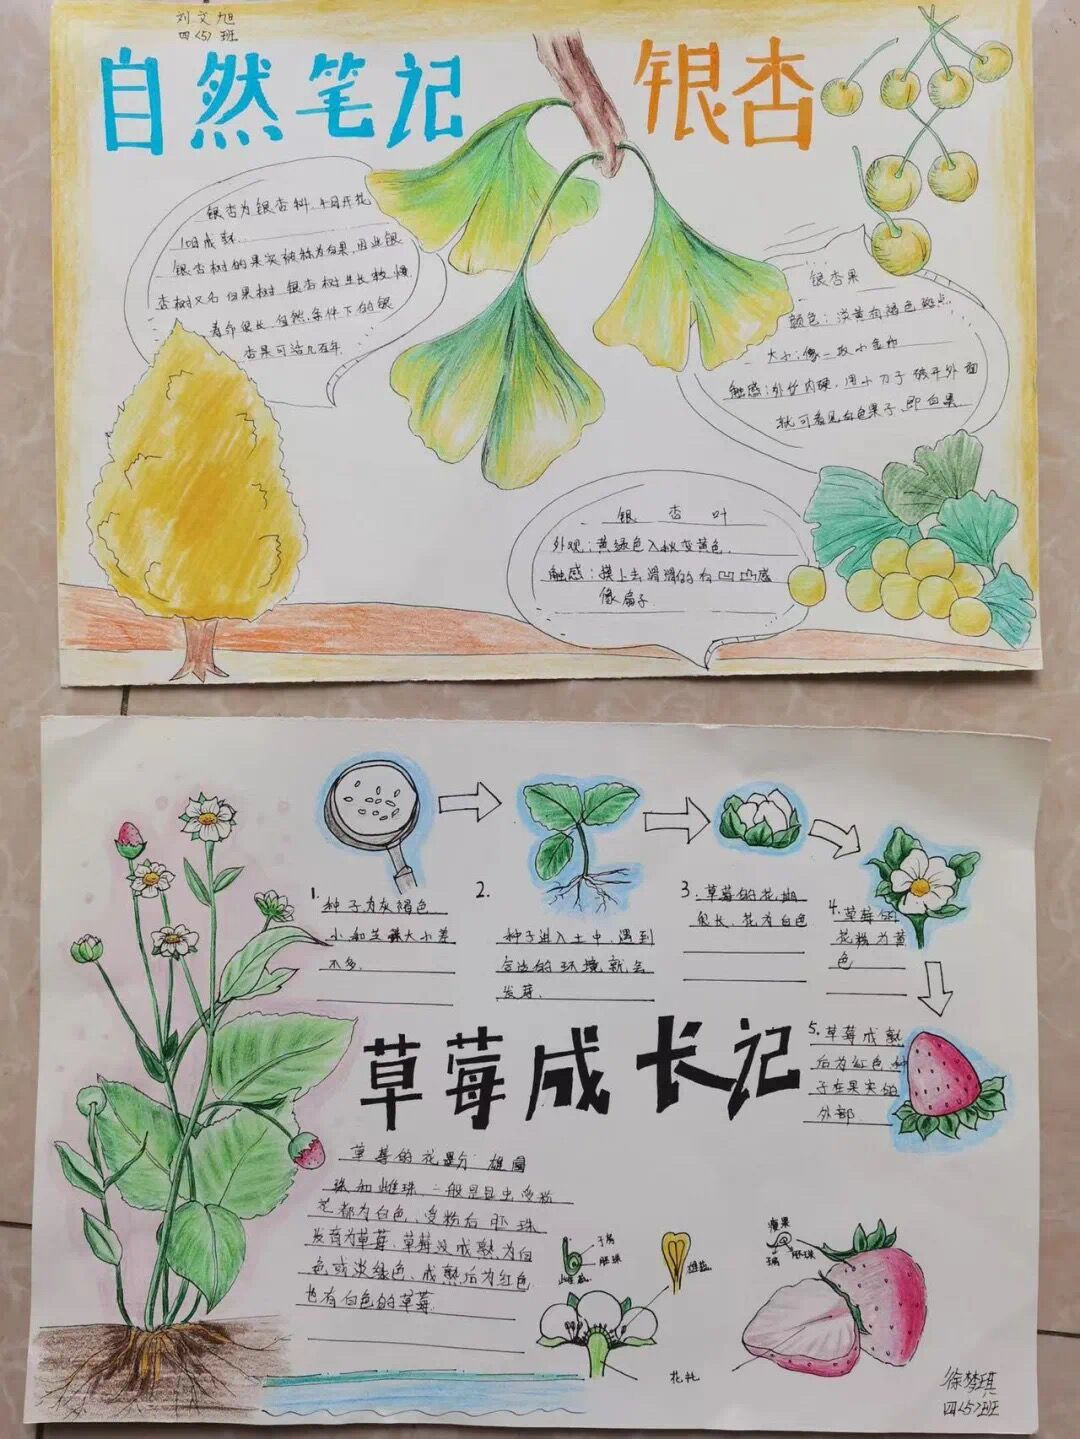 刘文旭
四(5)班
自然笔记
银杏
银杏为银杏科，4月开花
10月成熟
银杏树的果实被称为白果，因此银
杏树又名白果树 银杏树生长较慢
寿命很长，自然条件下的银
杏果可活几百年
银杏果
颜色：淡黄有褐色斑点
大小：像一枚小金币
触感：外软内硬，用小刀子破开外面
就可看见白色果子，即白果
银杏叶
外观：黄绿色入秋变黄色
触感：摸上去滑滑的有凹凸感
像扇子
1.
种子为灰褐色
小和芝麻大小差
不多.
2.
种子进入土中，遇到
合适的环境就会
发芽.
3.草莓的花期
很长、花为白色
4.草莓的
花粉为黄
色
5.草莓成熟
后为红色种
子在果实的
外部.
草莓成长记
草莓的花
花都为白色、受粉后
发育为草莓，草莓没成熟为白
色或淡绿色、成熟后为红色
也有白色的草莓.
子房
胚珠
雌蕊
雄蕊
瘦果
子房
胚珠
花托
徐梦琪
四(5)班